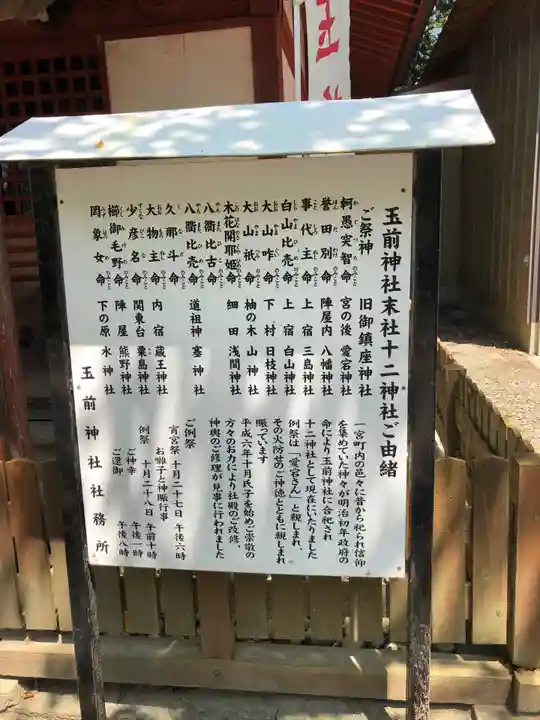 玉前神社末社十二神社ご由緒
ご祭神　旧御鎮座神社
軻愚突智命　宮の後　愛宕神社
誉田別命　陣屋内　八幡神社
事代主命　上宿　三島神社
白山比売命　上宿　白山神社
大山咋命　下村　日枝神社
大山祇命　柚の木　山神社
木花開耶姫命　細田　浅間神社
八衢比古命
八衢比売命　道祖神　塞神社
久那斗命
大物主命　内宿　蔵王神社
少彦名命　関東台　粟島神社
櫛御毛野命　陣屋　熊野神社
罔象女命　下の原　水神社
一宮町内の邑々に昔から祀られ信仰
を集めていた神々が明治初年政府の
命により玉前神社に合祀され
十二神社として現在にいたりました
例祭は「愛宕さん」と親しまれ、
その火防せのご神徳とともに親しまれ
賑っています
平成六年十月氏子を始めご崇敬の
方々のお力により社殿のご改修、
神輿のご修理が見事に行われました
ご例祭
宵宮祭　十月二十七日　午後六時
お囃子と神賑行事
例祭　十月二十八日　午前十時
ご神幸　午後一時
ご還御　午後八時
玉前神社社務所